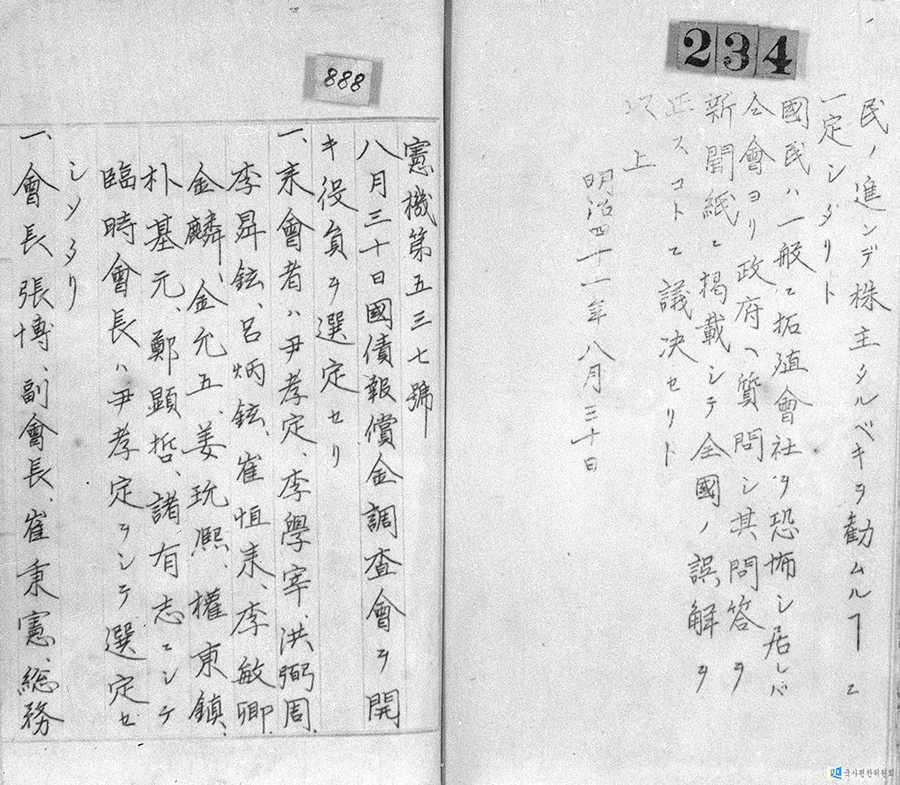 234
民ノ進ンデ株主タルベキヲ勸ムルヿニ
一定シタリト
國民ハ一般ニ拓殖會社ヲ恐怖シ居レバ
今會ヨリ政府ヘ質問シ其問答ヲ
新聞紙ニ掲載シテ全國ノ誤解ヲ
正スコトニ議決セリト
以上
明治四十一年八月三十日
888
憲機第五三七號
八月三十日國債報償金調査會ヲ開
キ役員ヲ選定セリ
一、来會者ハ尹孝定、李學宰、洪弼周
李昇鉉、呂炳鉉、崔恒来、李敏卿
金麟、金允五、姜玧熈、權東鎮、
朴基元、鄭顕哲、諸有志ニシテ
臨時會長ハ尹孝定ヲシテ選定セ
シメタリ
一、會長張博、副會長、崔秉憲、総務
국사편찬위원회